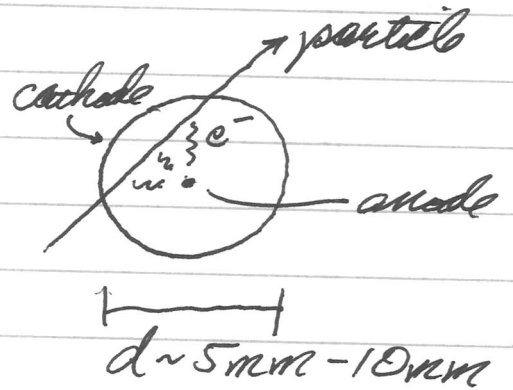 particle
cathode
e⁻
anode
d ~ 5mm - 10mm